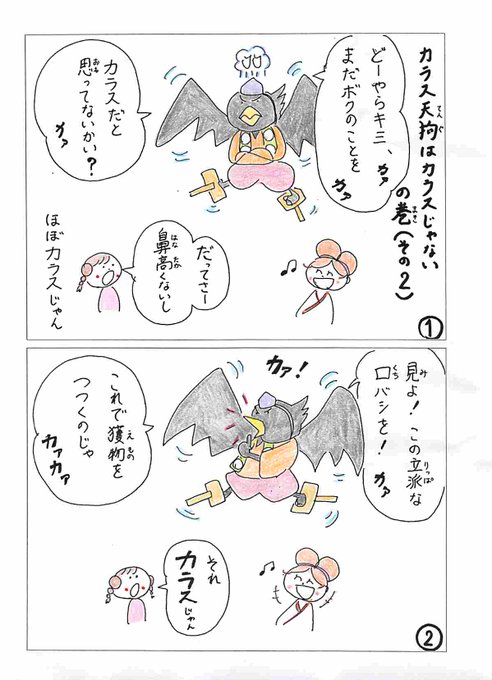 カラス天狗はカラスじゃない
の巻(その2)
どーやらキミ、カァ
まだボクのことを
カァ
カラスだと
思ってないかい?
カァ
だってさー
鼻高くないし
ほぼカラスじゃん
①
見よ!この立派な
口バシを!カァ
カァ!
これで獲物を
つつくのじゃ
カァカァ
それ
カラスじゃん
②